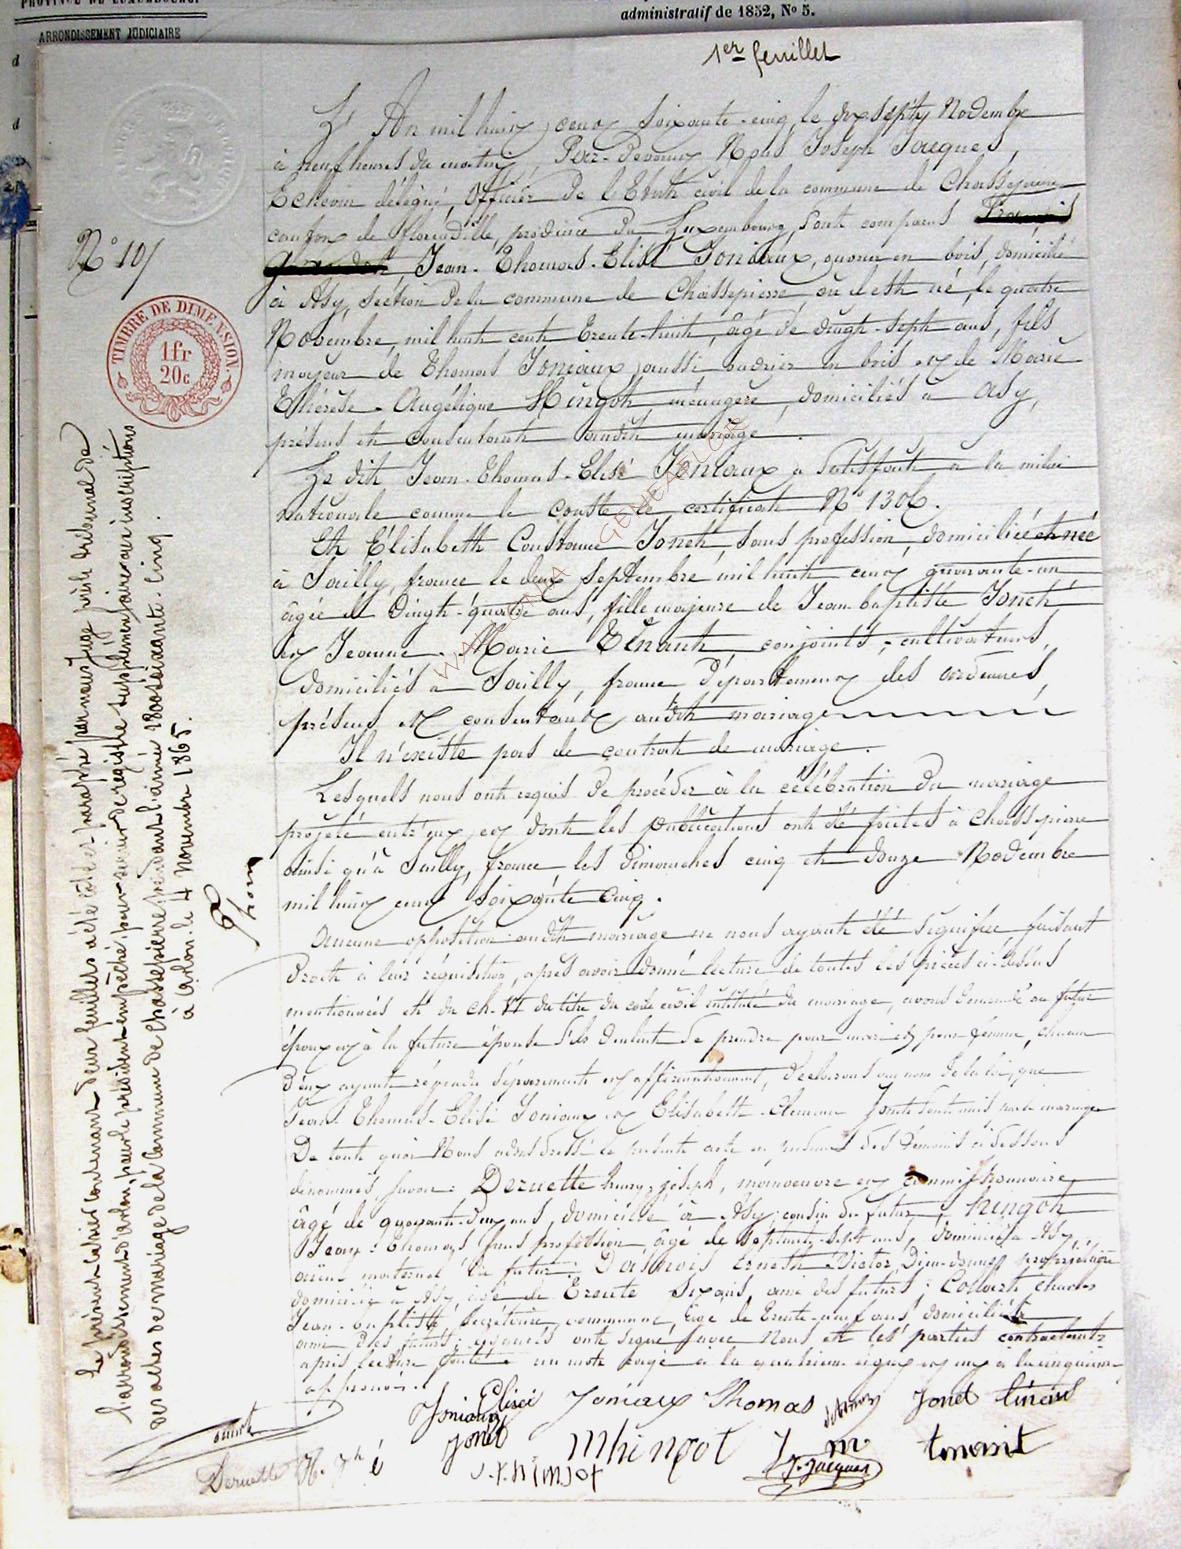 PROVINCE DE LUXEMBOURG.
ARRONDISSEMENT JUDICIAIRE
administratif de 1852, N° 5.
1er feuillet
N° 10
TIMBRE DE DIMENSION
1 fr
20 c
L'An mil huit cent soixante-cinq, le dix sept Novembre
à neuf heures du matin, Par-Devant Nous Joseph Jacques,
Echevin délégué, Officier De l'Etat civil de la commune de Chassepierre
canton de Florenville, province Du Luxembourg, sont comparus
Jean-Thomas-Elisé Joniaux, ouvrier en bois, domicilié
à Asy, section de la commune de Chassepierre, où il est né, le quatre
Novembre mil huit cent trente-huit, âgé de vingt-sept ans, fils
majeur de Thomas Joniaux, aussi ouvrier en bois et de Marie
Thérèse-Angélique Hingot, ménagère, domiciliés à Asy,
présens et consentant audit mariage.
Le dit Jean-Thomas-Elisé Joniaux a satisfait à la milice
nationale comme le constate certificat N° 1306.
Et Élisabeth Constance Jonet, sans profession, domiciliée et née
à Sailly, france le deux Septembre mil huit cent quarante-un
âgée de vingt-quatre ans, fille majeure de Jean-baptiste Jonet
et Jeanne-Marie Tenant, conjoints, cultivateurs,
domiciliés à Sailly, france Département des ardennes,
présens et consentant audit mariage
Il n'existe pas de contrat de mariage.
Lesquels nous ont requis De procéder à la célébration Du mariage
projeté entr'eux, et dont les publications ont été faites à Chassepierre
ainsi qu'à Sailly, france, les Dimanches cinq et douze Novembre
mil huit cent soixante cinq.
Aucune opposition audit mariage ne nous ayant été signifiée faisant
droit à leur réquisition, après avoir donné lecture de toutes les pièces ci-dessus
mentionnées et du ch. VI du titre du code civil intitulé Du mariage, avons demandé au futur
époux et à la future épouse s'ils veulent se prendre pour mari et pour femme, chacun
d'eux ayant répondu séparément et affirmativement, déclarons au nom De la loi, que
Jean-Thomas-Elisé Joniaux et Elisabeth Jonet sont unis par le mariage
De tout quoi Nous avons dressé le présent acte en présence des témoins ci dessous
dénommés, savoir: Deruette henry-joseph, manoeuvre et commissionnaire,
âgé de quarante-deux ans, domicilié à Asy, cousin du futur; hingot
Jean-Thomas, sans profession, âgé de septante-sept ans, domicilié à Asy
oncle maternel du futur; Ernest Victor Dieu-donné propriétaire
domicilié à Asy, âgé de Trente six ans, ami des futurs; Collart Charles
Jean-baptiste, secrétaire communal, âgé de Trente-neuf ans, domicilié
ami des futurs; lesquels ont signé avec Nous et les parties contractantes
après lecture faite. un mot rayé à la quatrième ligne et un à la cinquième
approuvés.
Joniaux Elisée Joniaux Thomas Jonet tinant
Jonet Mhingot J. Jacques tenant
Deruette H. Jh J. t. hingot
Le présent cahier contenant deux feuillets a été coté et paraphé par nous Juge près le tribunal de
l'arrondissement d'arlon, pour le président empêché, pour servir de régistre supplémentaire aux inscriptions
des actes de mariage de la Commune de Chassepierre pendant l'année 1800 soixante-cinq.
à Arlon le 4 Novembre 1865.